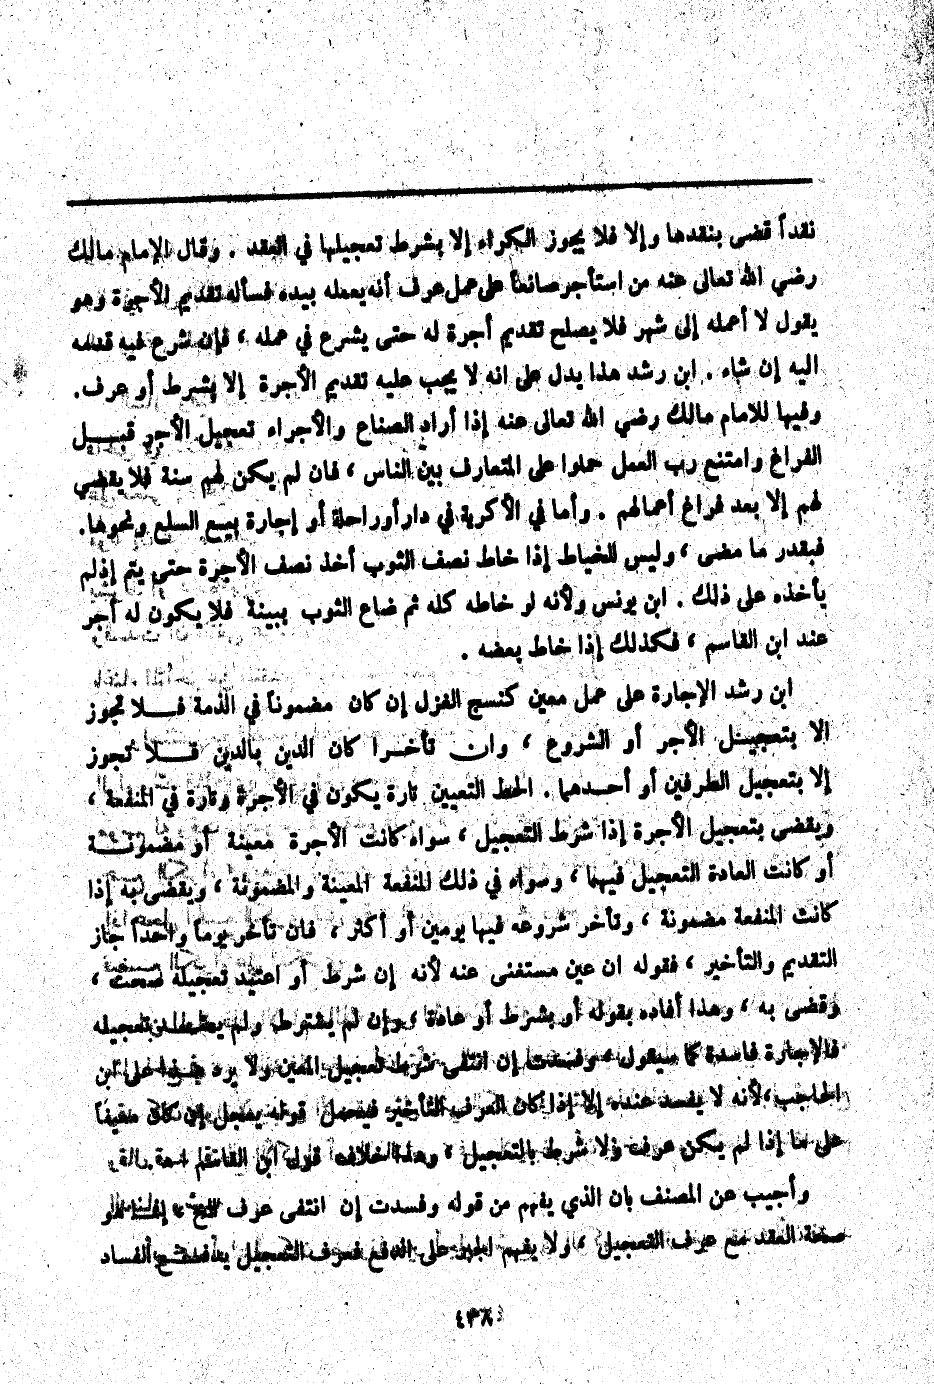 نقداً قضى بنقدها وإلا فلا يجوز الكراء إلا بشرط تعجيلها في العقد . وقال الإمام مالك
رضي الله تعالى عنه من استأجر صانعاً على عمل عرف أنه يعمله بيده فسأله تقديم الأجرة وهو
يقول لا أعمله إلى شهر فلا يصلح تقديم أجرة له حتى يشرع في عمله ، فإن شرع فيه قدمه
اليه إن شاء . ابن رشد هذا يدل على انه لا يجب عليه تقديم الأجرة إلا بشرط أو عرف .
وفيها للامام مالك رضي الله تعالى عنه إذا أراد الصناع والأجراء تعجيل الأجر قبـــل
الفراغ وامتنع رب العمل حملوا على المتعارف بين الناس ، فان لم يكن لهم سنة فلا يقضي
لهم إلا بعد فراغ أعمالهم . وأما في الأكرية في دار أو راحلة أو إجارة بيع السلع ونحوها .
فبقدر ما مضى ، وليس للخياط إذا خاط نصف الثوب أخذ نصف الأجرة حتى يتم إذ لم
يأخذه على ذلك . ابن يونس ولأنه لو خاطه كله ثم ضاع الثوب ببينة فلا يكون له أجر
عند ابن القاسم ، فكذلك إذا خاط بعضه .
ابن رشد الإجارة على عمل معين كنسج الغزل إن كان مضموناً في الذمة فـــلا تجوز
الا بتعجيـــل الأجر أو الشروع ، وان تأخـــرا كان الدين بالدين فـــلا تجوز
إلا بتعجيل الطرفين أو أحـــدهما . الحط التعيين تارة يكون في الأجرة وتارة في المنفعة ،
ويقضى بتعجيل الأجرة إذا شرط التعجيل ، سواء كانت الأجرة معينة أو مضمونـــة
أو كانت العادة التعجيل فيهما ، وسواء في ذلك المنفعة المعينة والمضمونة ، ويقضى به إذا
كانت المنفعة مضمونة ، وتأخر شروعه فيها يومين أو أكثر ، فان تأخر يوماً واحداً جاز
التقديم والتأخير ، فقوله ان عين مستغنى عنه لأنه إن شرط أو اعتيد تعجيله صحت ،
وقضى به ، وهذا أفاده بقوله أو بشرط أو عادة ، وإن لم يشترط ولم يعتد تعجيله
فالإجارة فاسدة كما سيقول ، وفسدت إن انتفى شرط تعجيل المعين ولا يرد هذا على ابن
الحاجب ، لأنه لا يفسد عنده إلا إذا كان العرف التأخير فيحمل قوله يعجل إن كان معيناً
على ما إذا لم يكن عرف ولا شرط بالتعجيل ، وهذا خلاف قول ابن القاسم
وأجيب عن المصنف بان الذي يفهم من قوله وفسدت إن انتفى عرف الخ ، إنمـــا هو
صحة العقد مع عرف التعجيل ، ولا يفهم الجبر على الدفع فعرف التعجيل يدفـــع الفساد
٤٣٨